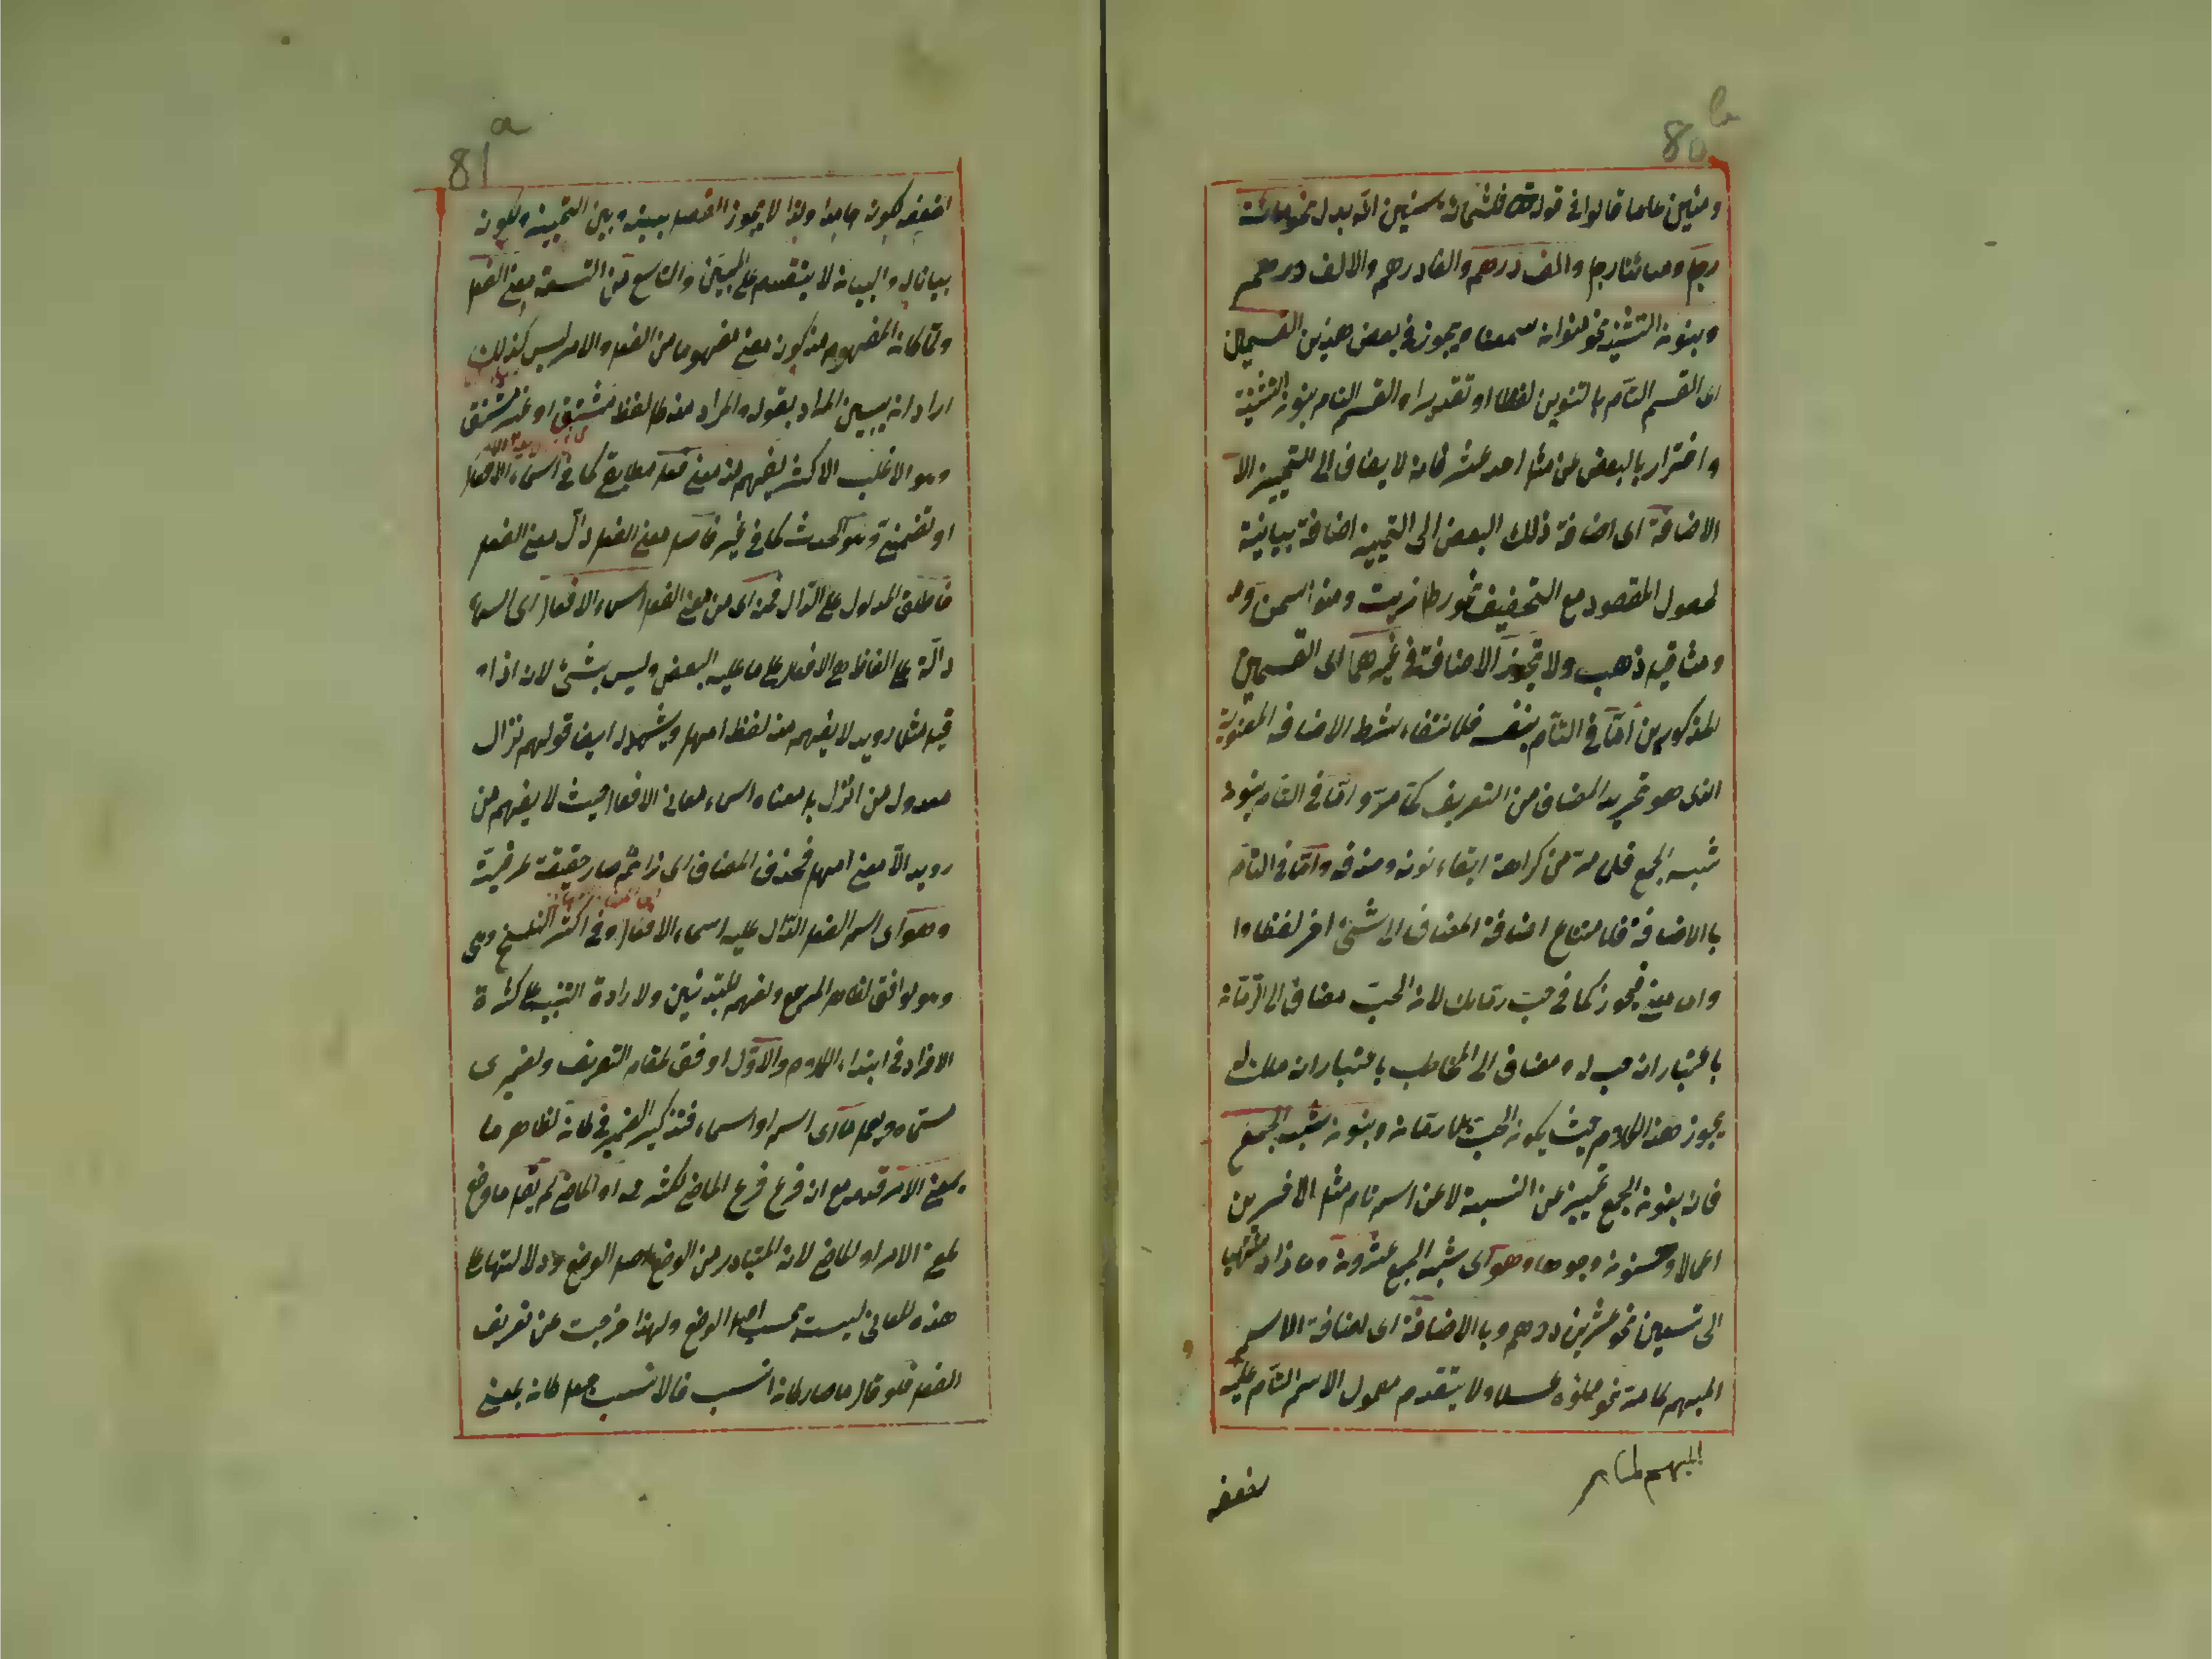 80 b
ومئين عاما قالوا في قوله ثلثمائة سنين انه بدل نحو مائة
رجل ومائتا رجل والف درهم والفا درهم والالف درهم
وبنون التثنية نحو منوان سمنا ويجوز في بعض هذين القسمين
اى القسم التام بالتنوين لفظا او تقديرا والقسم التام بنون التثنية
واحترز بالبعض عن مثل احد عشر فانه لا يضاف الى التمييز الا
الاضافة اى اضافة ذلك البعض الى التمييز اضافة بيانية
لحصول المقصود مع التخفيف نحو رطل زيت ومنوا سمن
ومثاقيل ذهب ولا تجوز الاضافة في غيرهما اى القسمين
المذكورين اما في التام بنفسه فلانتفاء شرط الاضافة المعنوية
الذى هو تجريد المضاف من التعريف كما مر واما في التام بنون
شبه الجمع فلما مر من كراهة ابقاء نونه وحذفه واما في التام
بالاضافة فلامتناع اضافة المضاف الى شئ اخر لفظا وا
واما معنى فيجوز كما في حب رمانك لان الحب مضاف الى الرمانة
باعتبار انه حب له ومضاف الى المخاطب باعتبار انه ملك له
يجوز هذا الكلام حيث يكون الحب بلا رمانة وبنون شبه الجمع
فان بنون الجمع تمييز عن النسبة لا عن اسم تام مثل الاخسرين
اعمالا وحسنون وجوها وهو اى شبه الجمع عشرون وما زاد
الى تسعين نحو عشرين درهم وبالاضافة اى اضافة الاسم
المبهم كما مر نحو ملؤه عسلا ولا يتقدم معمول الاسم التام عليه
المبهم لما مر
لضعفه
81 a
لضعفه لكونه جامدا ولذا لا يجوز الفصل بينه وبين التمييز ولكونه
بيانا له والبيان لا يتقدم على المبين والتاسع من التسعة معنى الفعل
ولما كان المفهوم منه كون معنى مفهوما من الفعل والامر ليس كذلك
اراد ان يبين المراد بقوله والمراد منه كل لفظ مشتق او غير مشتق
وهو الاغلب الاكثر يفهم منه معنى فعل مطابق كما في اسماء الافعال
او تضمني وهو الحدث كما في غيره فاصل معنى الفعل دال معنى الفعل
فاطلق المدلول على الدال فمنه اى من معنى الفعل اسماء الافعال اى اسماء
دالة على الفاظ هي الافعال على ما عليه البعض وليس بشئ لان اذا
قيل مثل رويد لا يفهم منه لفظ امهل ويشهد له ايضا قولهم نزال
معدول من انزل بل معناه اسماء معاني الافعال حيث لا يفهم من
رويد الا معنى امهل فحذف المضاف اى زائم صار حقيقة عرفية
وهو اى اسم الفعل الدال عليه اسماء الافعال وفي اكثر النسخ وهى
وهو اوافق لظاهر المرجع ولفهم المبتدئين ولارادة التنبيه على كثرة
الافراد في ابتداء الكلام والاول اوفق لمقام التعريف ولضميرى
مسماه ويعمل ما اى اسم او اسماء فتذكير الضمير في كان لظاهر ما
بمعنى الامر قدمه مع ان فرع فرع الماضى لكثرته او الماضى لم يقل ما وضع
لمعنى الامر او الماضى لان المتبادر من الوضع اصل الوضع ودلالتها على
هذه المعانى ليست بحسب اصل الوضع ولهذا خرجت عن تعريف
الفعل فلو قال ما صار كان انسب فالانسب جعل كان بمعنى